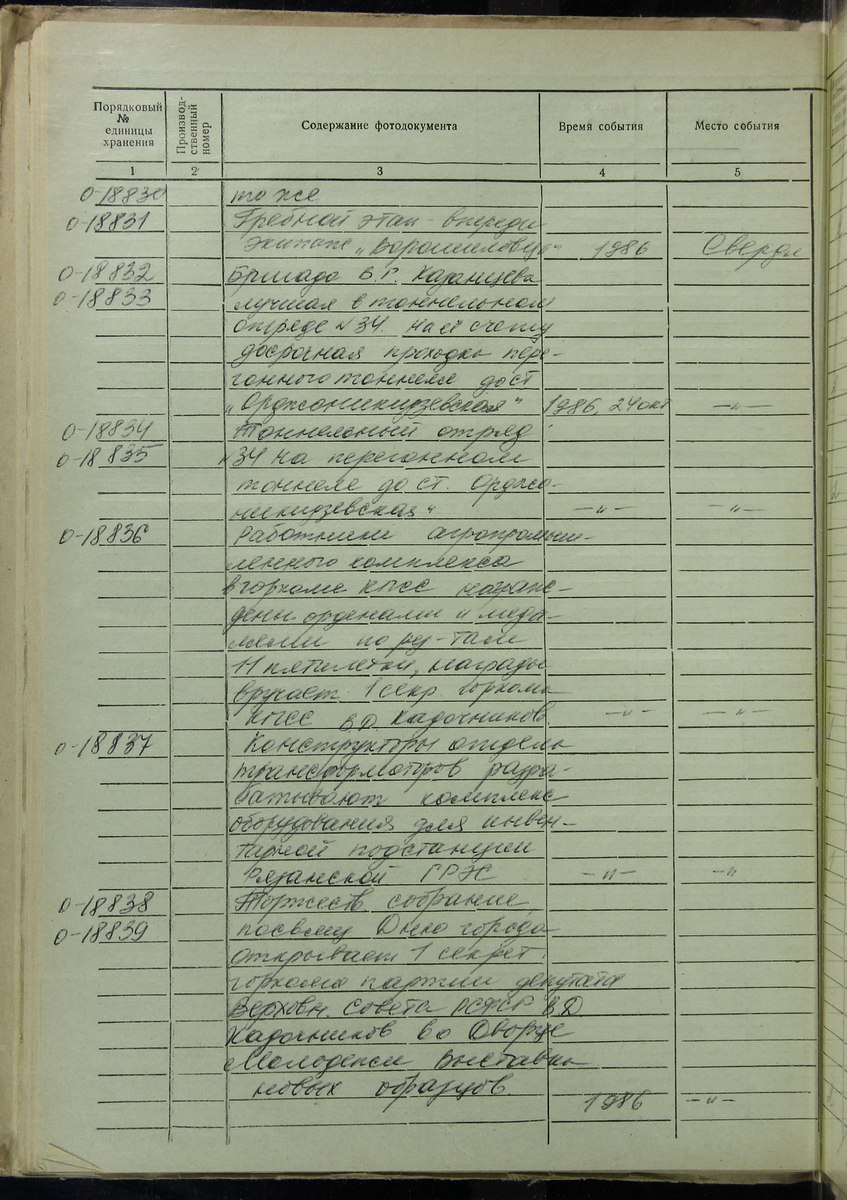 Порядковый № единицы хранения
Производственный номер
Содержание фотодокумента
Время события
Место события
1 2 3 4 5
0-18830 то же
0-18831 Гребной этап - впереди
экипаж „Ворошиловца“ 1986 Свердл
0-18832 Бригада В.Г. Казанцева
0-18833 лучшая в тоннельном
отряде №34. На её счету
досрочная проходка пере-
гонного тоннеля до ст
„Орджоникидзевская“ 1986, 24 окт —„—
0-18834 Тоннельный отряд
0-18835 №34 на перегонном
тоннеле до ст. Орджо-
никидзевская“ —„— —„—
0-18836 Работники агропромыш-
ленного комплекса
в горкоме КПСС награж-
дены орденами и меда-
лями по рез-там
11 пятилетки, награды
вручает 1 секр горкома
КПСС В Д Кадочников —„— —„—
0-18837 Конструкторы отдела
трансформаторов разра-
батывают комплекс
оборудования для инвен-
тарной подстанции
Рязанской ГРЭС —„— —„—
0-18838 Торжеств собрание
0-18839 посвящ Дню города
открывает 1 секрет.
горкома партии депутат
Верховн. Совета РСФСР В Д
Кадочников во Дворце
Молодежи Выставка
новых образцов 1986 —„—